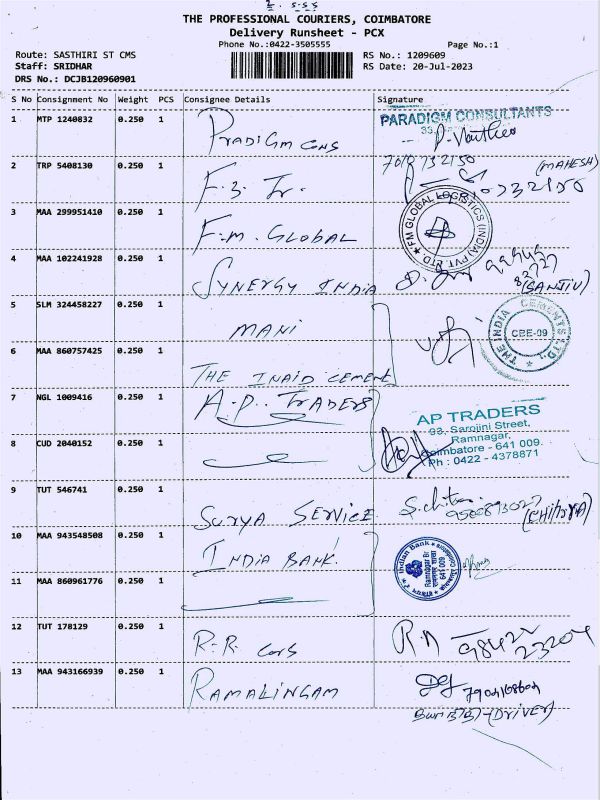 THE PROFESSIONAL COURIERS, COIMBATORE
Delivery Runsheet - PCX
Phone No.:0422-3505555 Page No.:1
Route: SASTHIRI ST CMS RS No.: 1209609
Staff: SRIDHAR RS Date: 20-Jul-2023
DRS No.: DCJB120960901
S No Consignment No Weight PCS Consignee Details Signature
1 MTP 1240832 0.250 1 PRADIGM CONS PARADIGM CONSULTANTS
2 TRP 5408130 0.250 1 (MAHESH)
3 MAA 299951410 0.250 1 F.M. GLOBAL FM GLOBAL LOGISTICS (INDIA) PVT LTD.
4 MAA 102241928 0.250 1 SYNERGY INDIA
(SANJIV)
5 SLM 324458227 0.250 1 MANI THE INDIA CEMENTS LTD.,
CBE-09
6 MAA 860757425 0.250 1 THE INAID CEMENT
7 NGL 1009416 0.250 1 A.P. TRADERS AP TRADERS
93, Sarojini Street,
Ramnagar,
8 CUD 2040152 0.250 1 Coimbatore - 641 009.
Ph : 0422 - 4378871
9 TUT 546741 0.250 1 SURYA SERVICE S.chitra
(CHITRA)
10 MAA 943548508 0.250 1 INDIA BANK. Indian Bank
Ramnagar Br
641 009
11 MAA 860961776 0.250 1
12 TUT 178129 0.250 1 R.R. CONS
13 MAA 943166939 0.250 1 RAMALINGAM
(DRIVER)